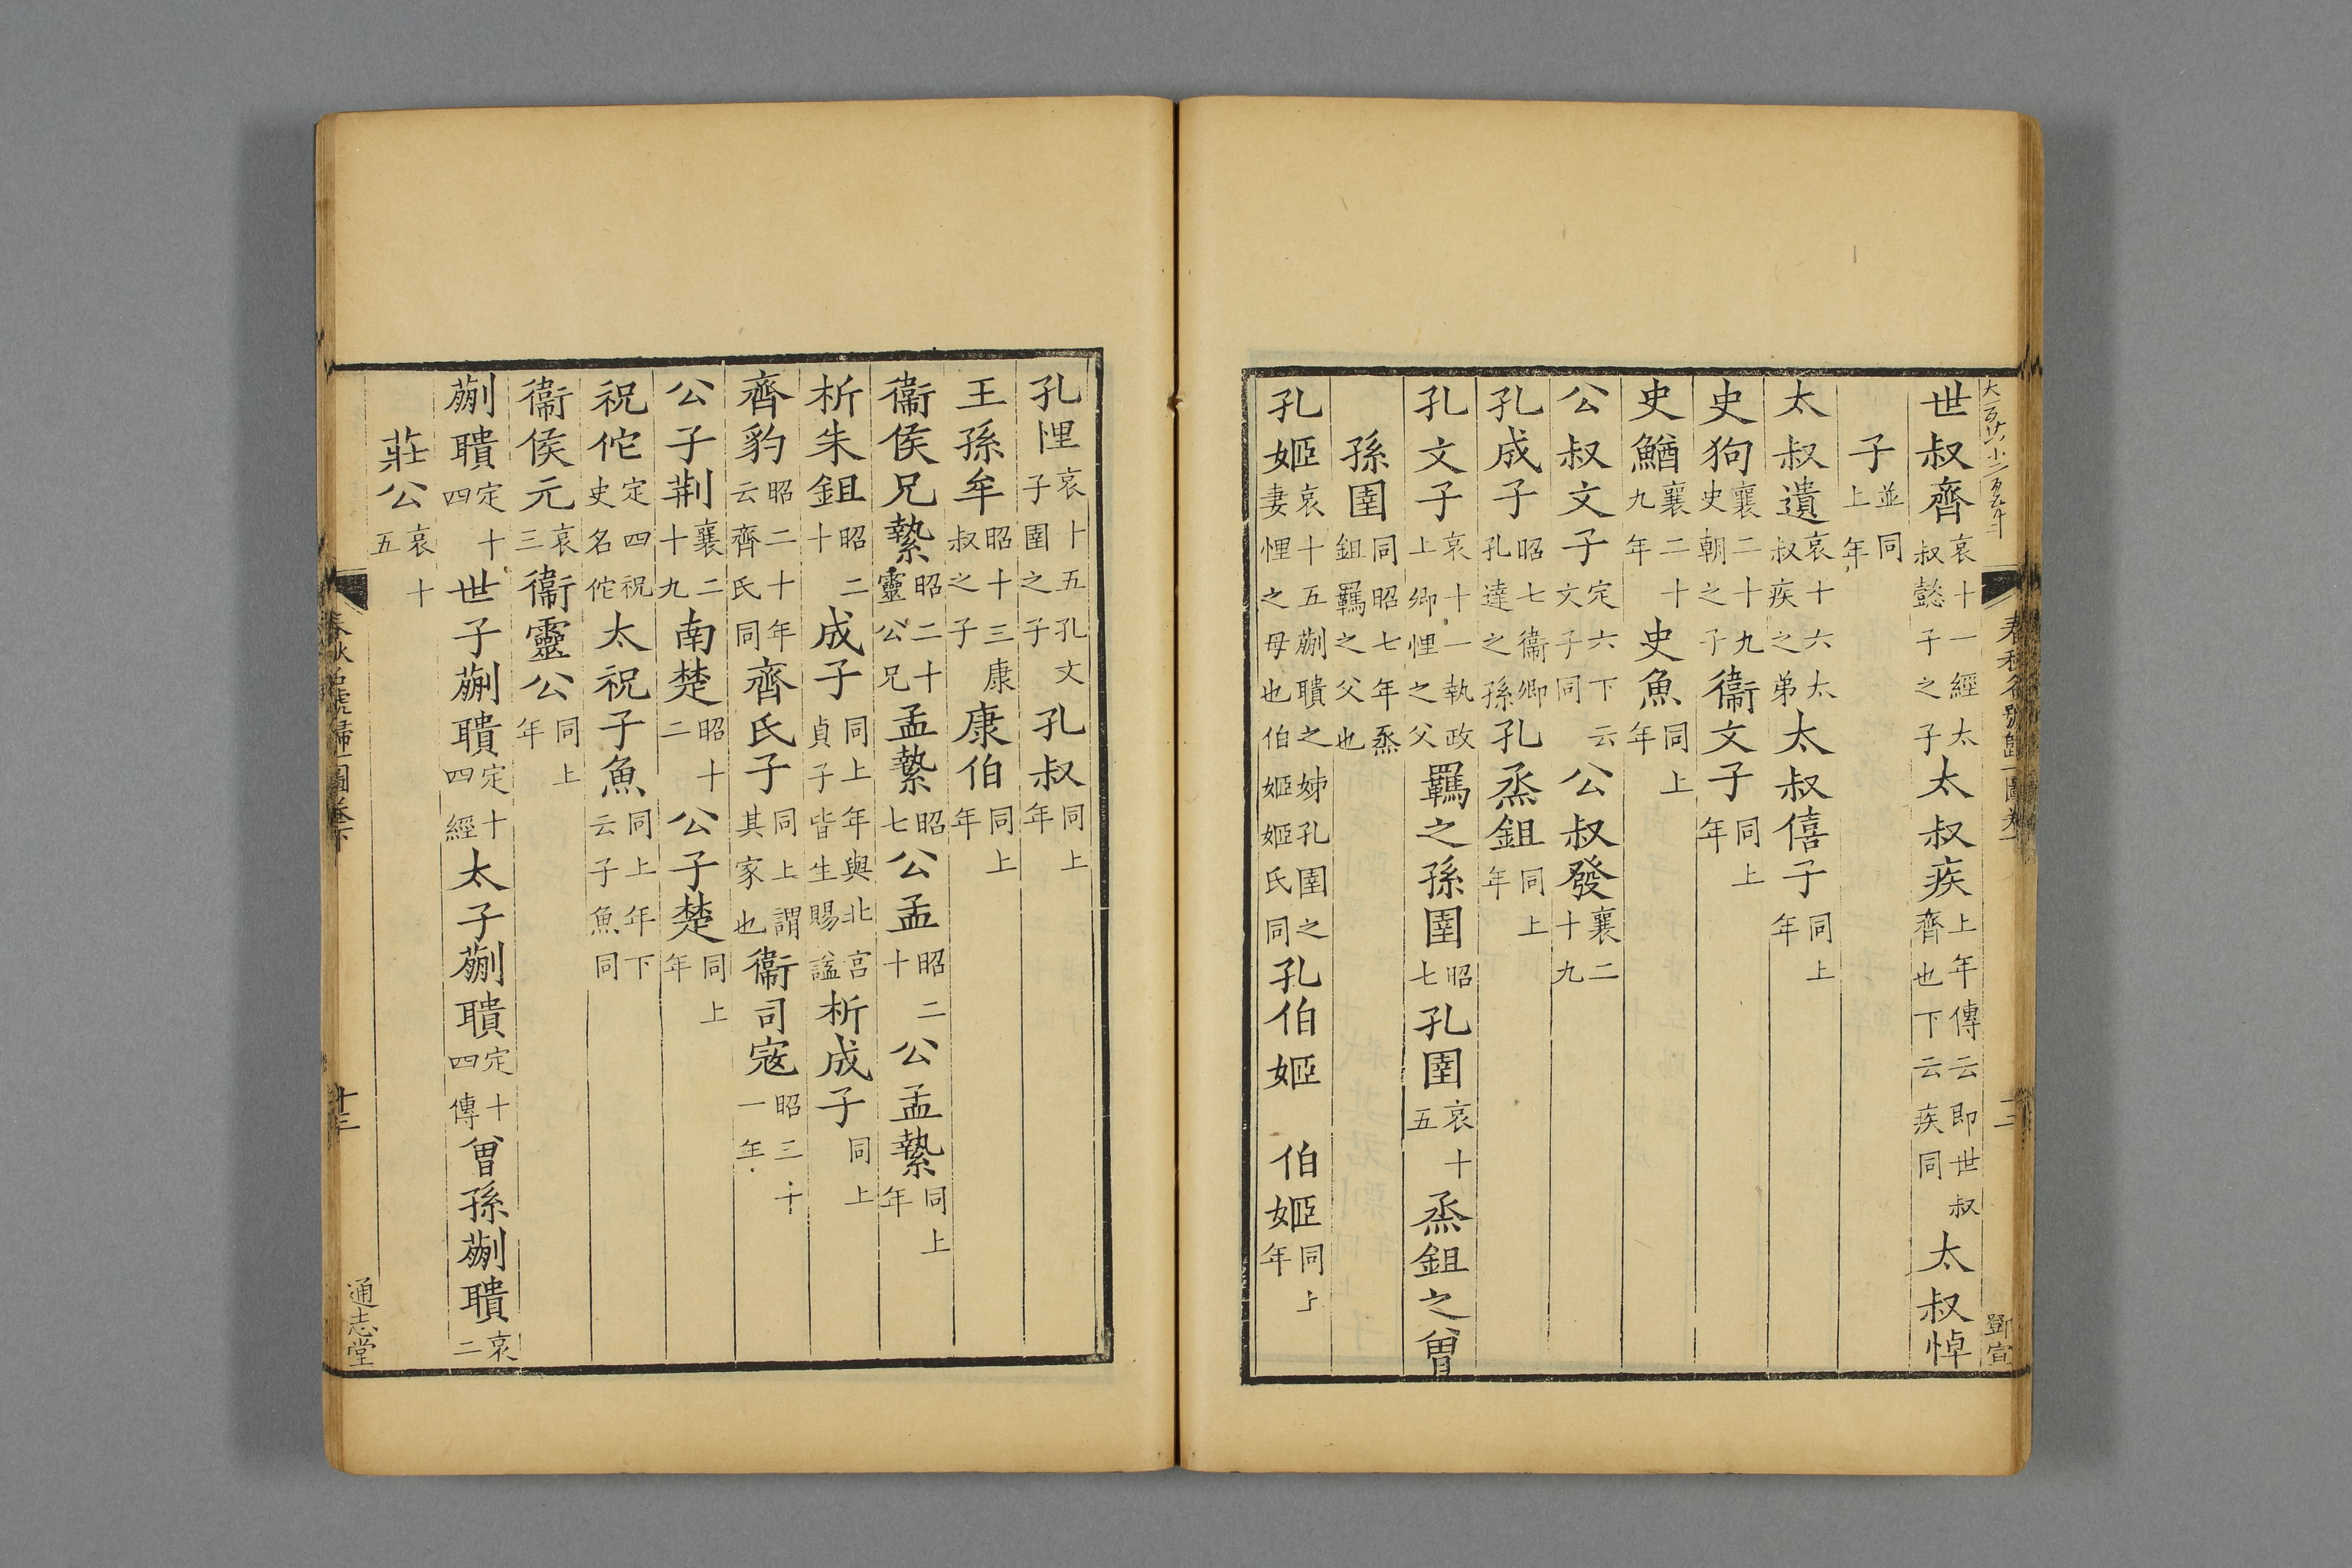 世叔齊哀十一經太叔懿子之子太叔疾上年傳云即世叔齊也下云疾同太叔悼
子並同上年
太叔遺哀十六太叔疾之弟太叔僖子同上年
史狗襄二十九史朝之子衞文子同上年
史鰌襄二十九年史魚同上年
公叔文子定六下云文子同公叔發襄二十九
孔成子昭七衞卿孔達之孫孔烝鉏同上年
孔文子哀十一執政上卿悝之父羈之孫圉昭七孔圉哀十五烝鉏之曾
孫圉同昭七年烝鉏羈之父也
孔姬哀十五蒯聵之姊孔圉之妻悝之母也伯姬姬氏同孔伯姬 伯姬同上年
鄧宣
孔悝哀十五孔文子圉之子孔叔同上年
王孫牟昭十三康叔之子康伯同上年
衞侯兄縶昭二十靈公兄孟縶昭七公孟昭二十公孟縶同上年
析朱鉏昭二十成子同上年與北宮貞子皆生賜謚析成子同上
齊豹昭二十年云齊氏同齊氏子同上謂其家也衞司寇昭三十一年
公子荆襄二十九南楚昭十二公子楚同上年
祝佗定四祝史名佗太祝子魚同上年下云子魚同
衞侯元哀三衞靈公同上年
蒯聵定十四世子蒯聵定十四經太子蒯聵定十四傳曾孫蒯聵哀二
莊公哀十五
春秋名號歸一圖卷下
十三
通志堂